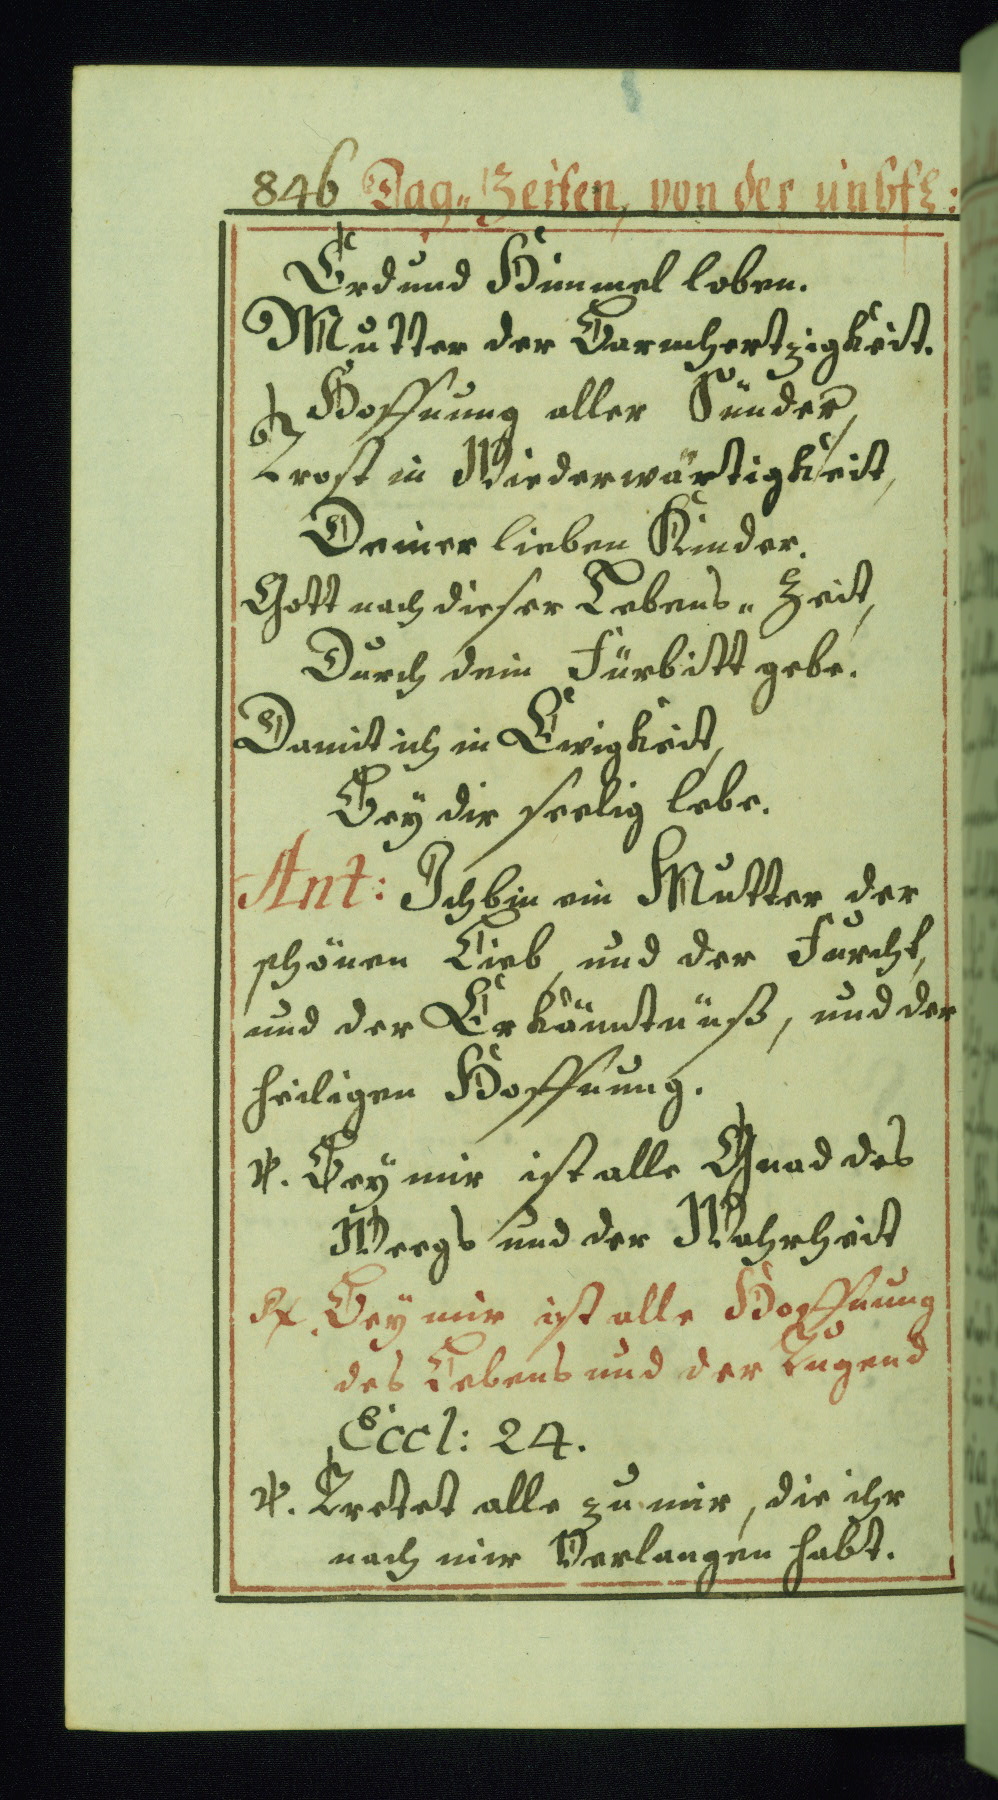 846 Tag-Zeiten, von der unbfl:
Erd und Himmel loben.
Mutter der Barmhertzigkeit.
Hoffnung aller Sünder,
Trost in Wiederwärtigkeit,
Deiner lieben Kinder.
Gott nach dieser Lebens-Zeit,
Durch dein Fürbitt gebe.
Damit ich in Ewigkeit,
Bey dir seelig lebe.
Ant: Ich bin ein Mutter der
schönen Lieb, und der Furcht,
und der Erkänntnüß, und der
heiligen Hoffnung.
℣. Bey mir ist alle Gnad des
Weegs und der Wahrheit
℟. Bey mir ist alle Hoffnung
des Lebens und der Tugend
Eccl: 24.
℣. Trettet alle zu mir, die ihr
nach mir Verlangen habt.